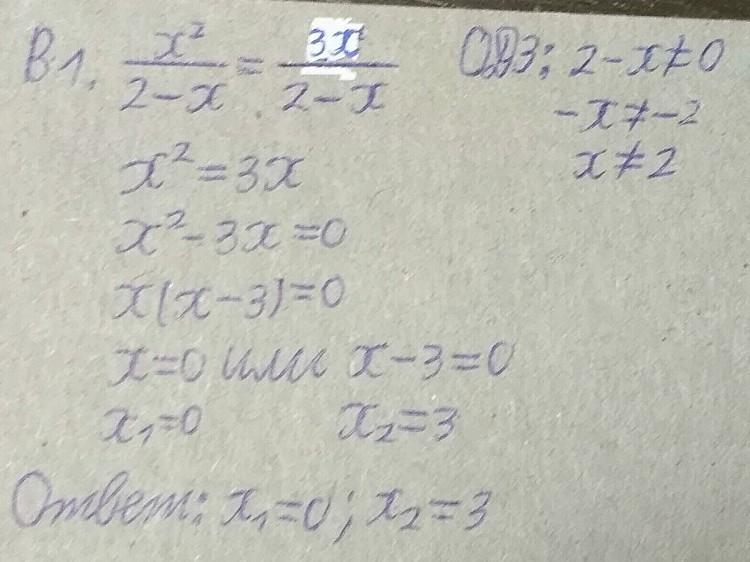 В1. x²/(2-x) = 3x/(2-x) ОДЗ: 2-x≠0
-x≠-2
x²=3x x≠2
x²-3x=0
x(x-3)=0
x=0 или x-3=0
x₁=0 x₂=3
Ответ: x₁=0; x₂=3